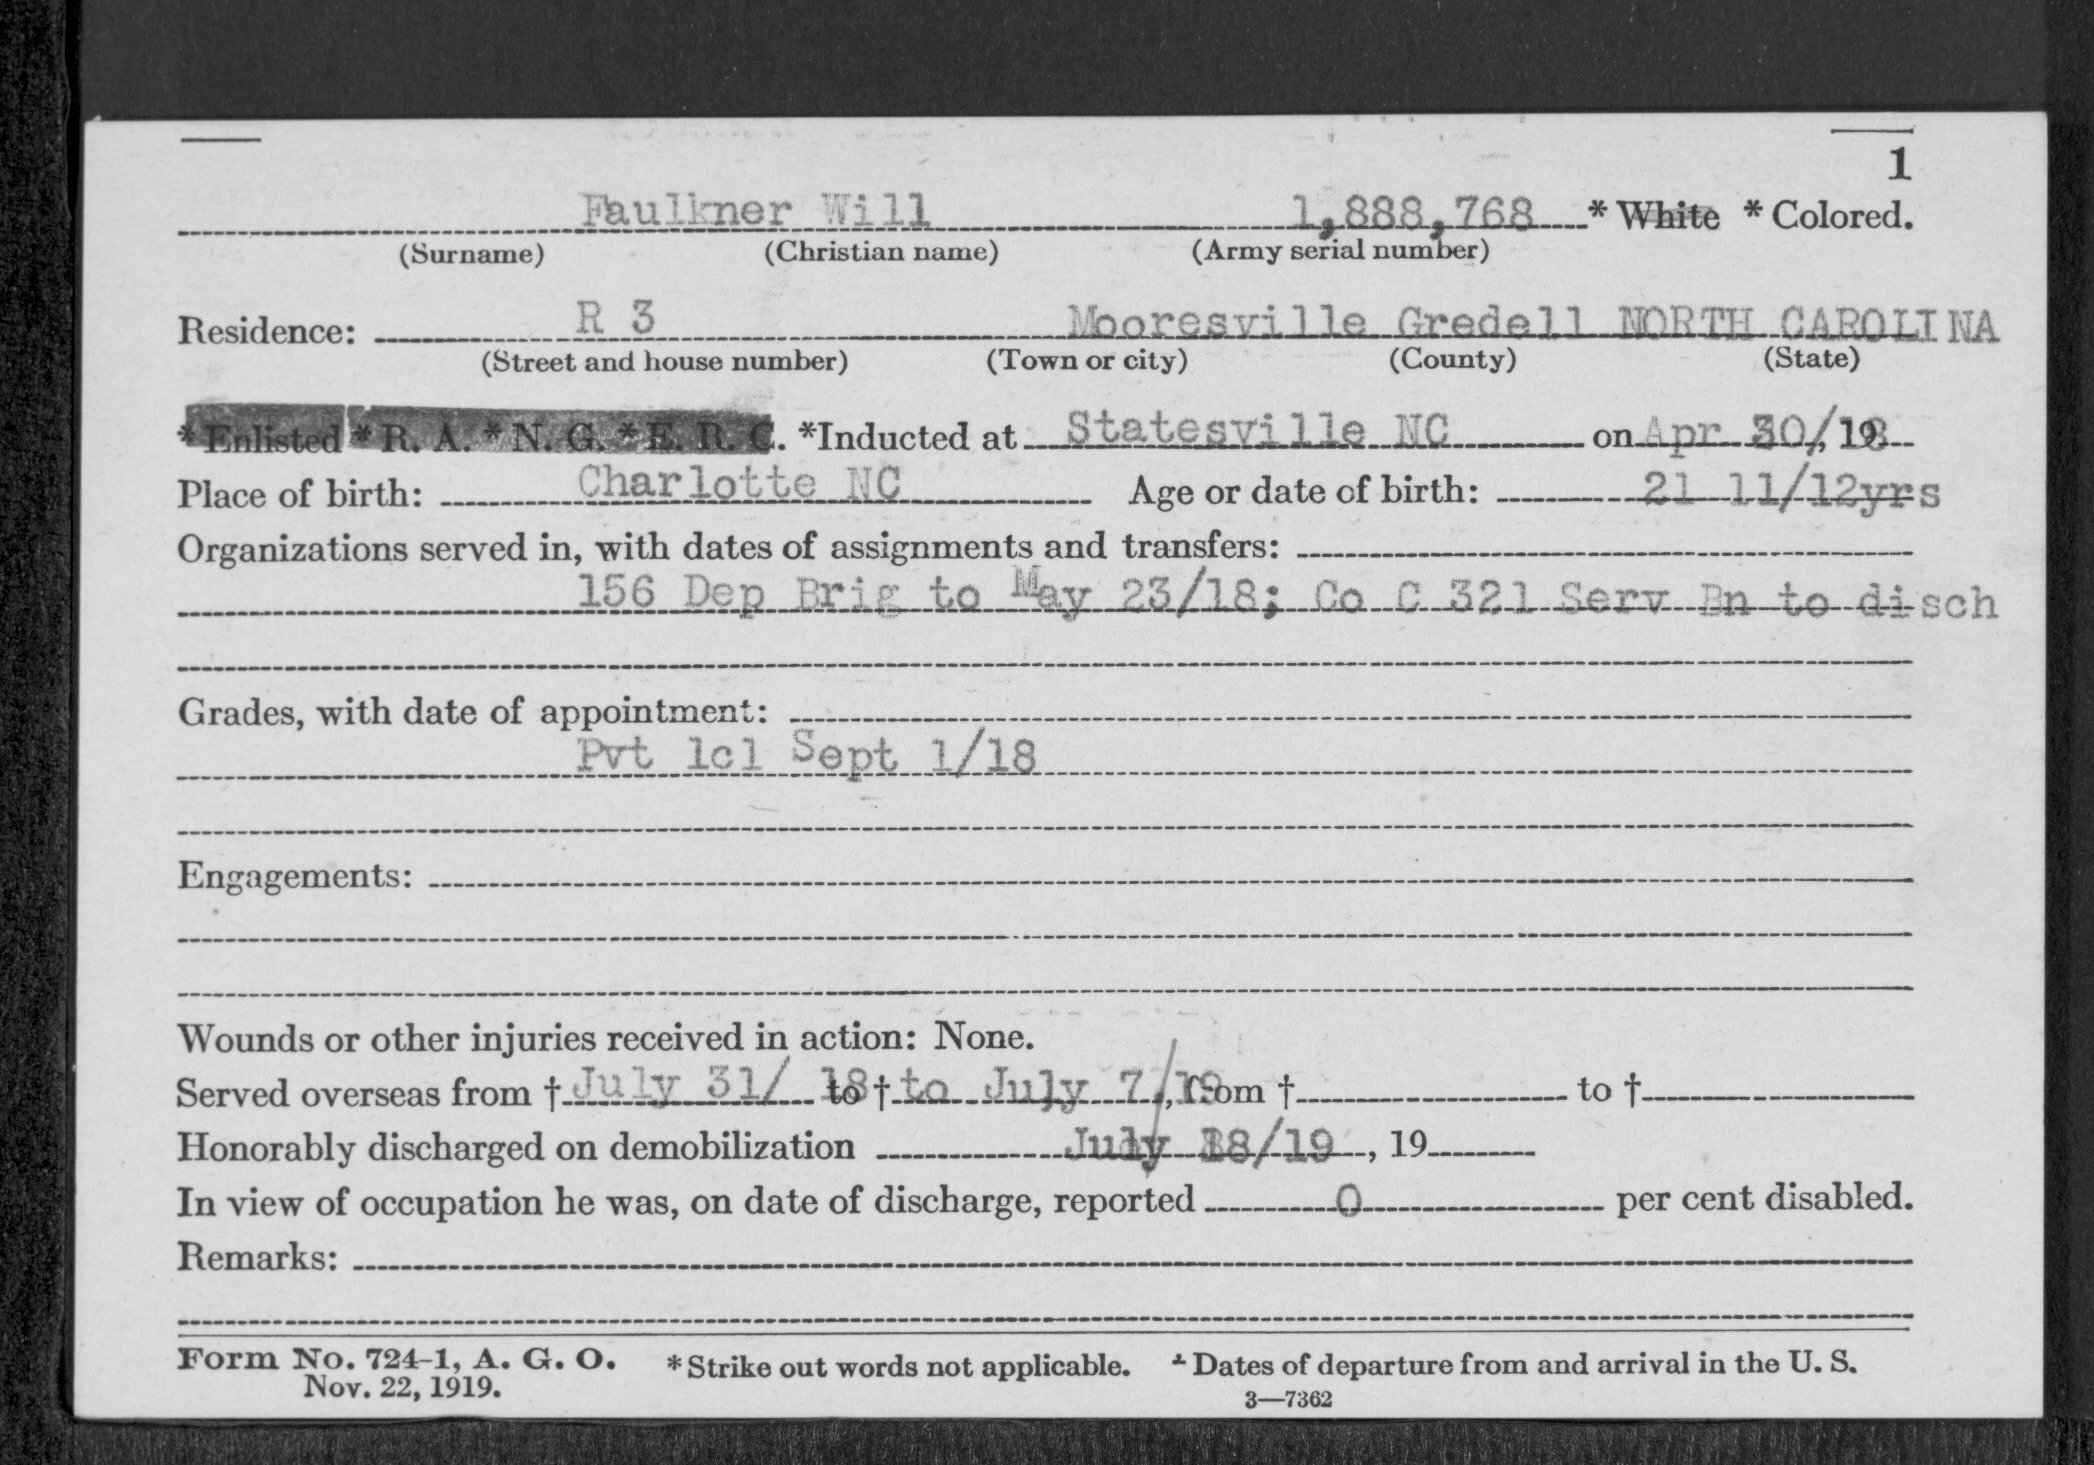 1
Faulkner Will 1,888,768 * White * Colored.
(Surname) (Christian name) (Army serial number)
Residence: R 3 Mooresville Gredell NORTH CAROLINA
(Street and house number) (Town or city) (County) (State)
* Enlisted * R. A. * N. G. * E. R. C. *Inducted at Statesville NC on Apr 30/, 198
Place of birth: Charlotte NC Age or date of birth: 21 11/12yrs
Organizations served in, with dates of assignments and transfers:
156 Dep Brig to May 23/18; Co C 321 Serv Bn to disch
Grades, with date of appointment:
Pvt 1cl Sept 1/18
Engagements:
Wounds or other injuries received in action: None.
Served overseas from † July 31/ 18 to † to July 7/19, from † to †
Honorably discharged on demobilization July 18/19, 19
In view of occupation he was, on date of discharge, reported 0 per cent disabled.
Remarks:
Form No. 724-1, A. G. O. * Strike out words not applicable. † Dates of departure from and arrival in the U. S.
Nov. 22, 1919. 3—7362